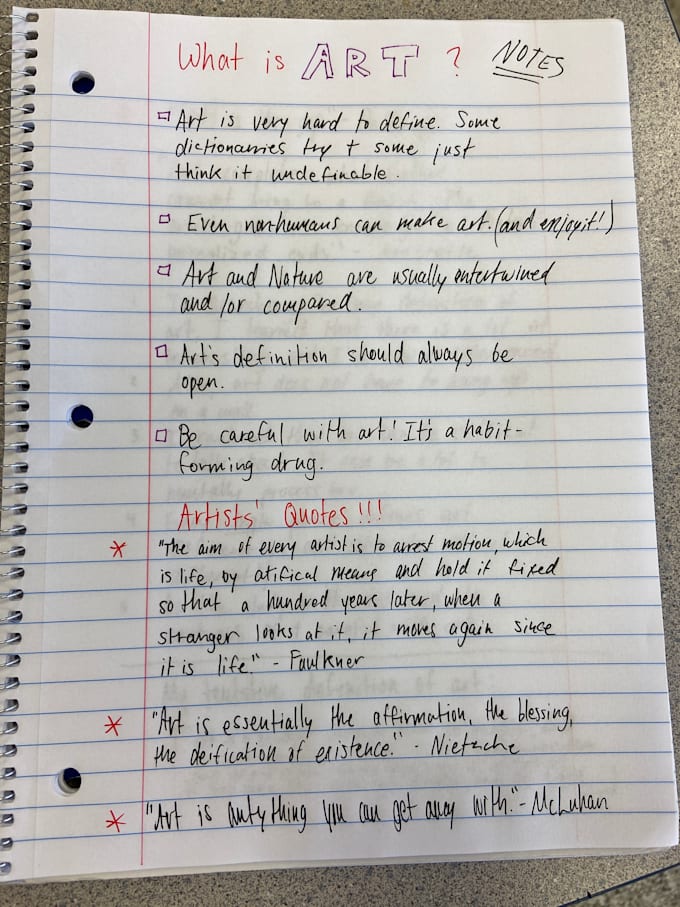 What is ART ? NOTES
Art is very hard to define. Some
dictionarries try + some just
think it undefinable.
Even non-humans can make art. (and enjoy it!)
Art and Nature are usually entertwined
and/or compared.
Art's definition should always be
open.
Be careful with art! It's a habit-
forming drug.
Artists' Quotes!!!
* "The aim of every artist is to arrest motion, which
is life, by atifical means and hold it fixed
so that a hundred years later, when a
stranger looks at it, it moves again since
it is life." - Faulkner
* "Art is essentially the affirmation, the blessing,
the deification of existence." - Nietzche
* "Art is anything you can get away with." - McLuhan